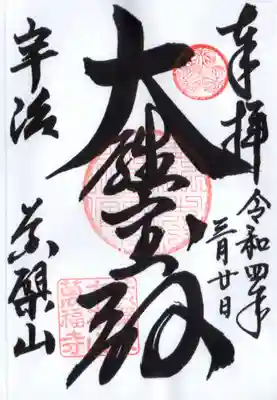 奉拝
令和四年
三月廿日
大雄宝殿
萬福寺
宇治
黄檗山